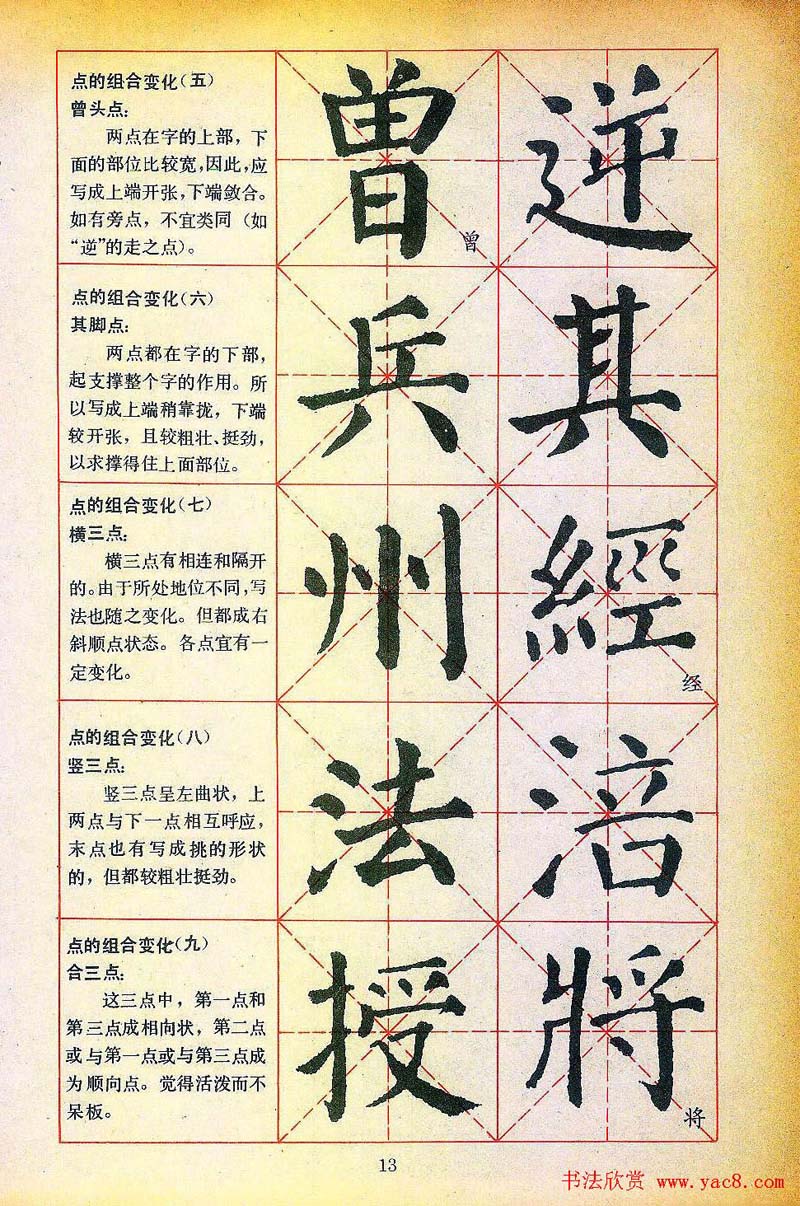 点的组合变化（五）
曾头点：
两点在字的上部，下
面的部位比较宽，因此，应
写成上端开张，下端敛合。
如有旁点，不宜类同（如
“逆”的走之点）。
曾
逆
曾
点的组合变化（六）
其脚点：
两点都在字的下部，
起支撑整个字的作用。所
以写成上端稍靠拢，下端
较开张，且较粗壮、挺劲，
以求撑得住上面部位。
兵
其
点的组合变化（七）
横三点：
横三点有相连和隔开
的。由于所处地位不同，写
法也随之变化。但都成右
斜顺点状态。各点宜有一
定变化。
州
經
经
点的组合变化（八）
竖三点：
竖三点呈左曲状，上
两点与下一点相互呼应，
末点也有写成挑的形状
的，但都较粗壮挺劲。
法
涪
点的组合变化（九）
合三点：
这三点中，第一点和
第三点成相向状，第二点
或与第一点或与第三点成
为顺向点。觉得活泼而不
呆板。
授
將
将
13
书法欣赏 www.yac8.com